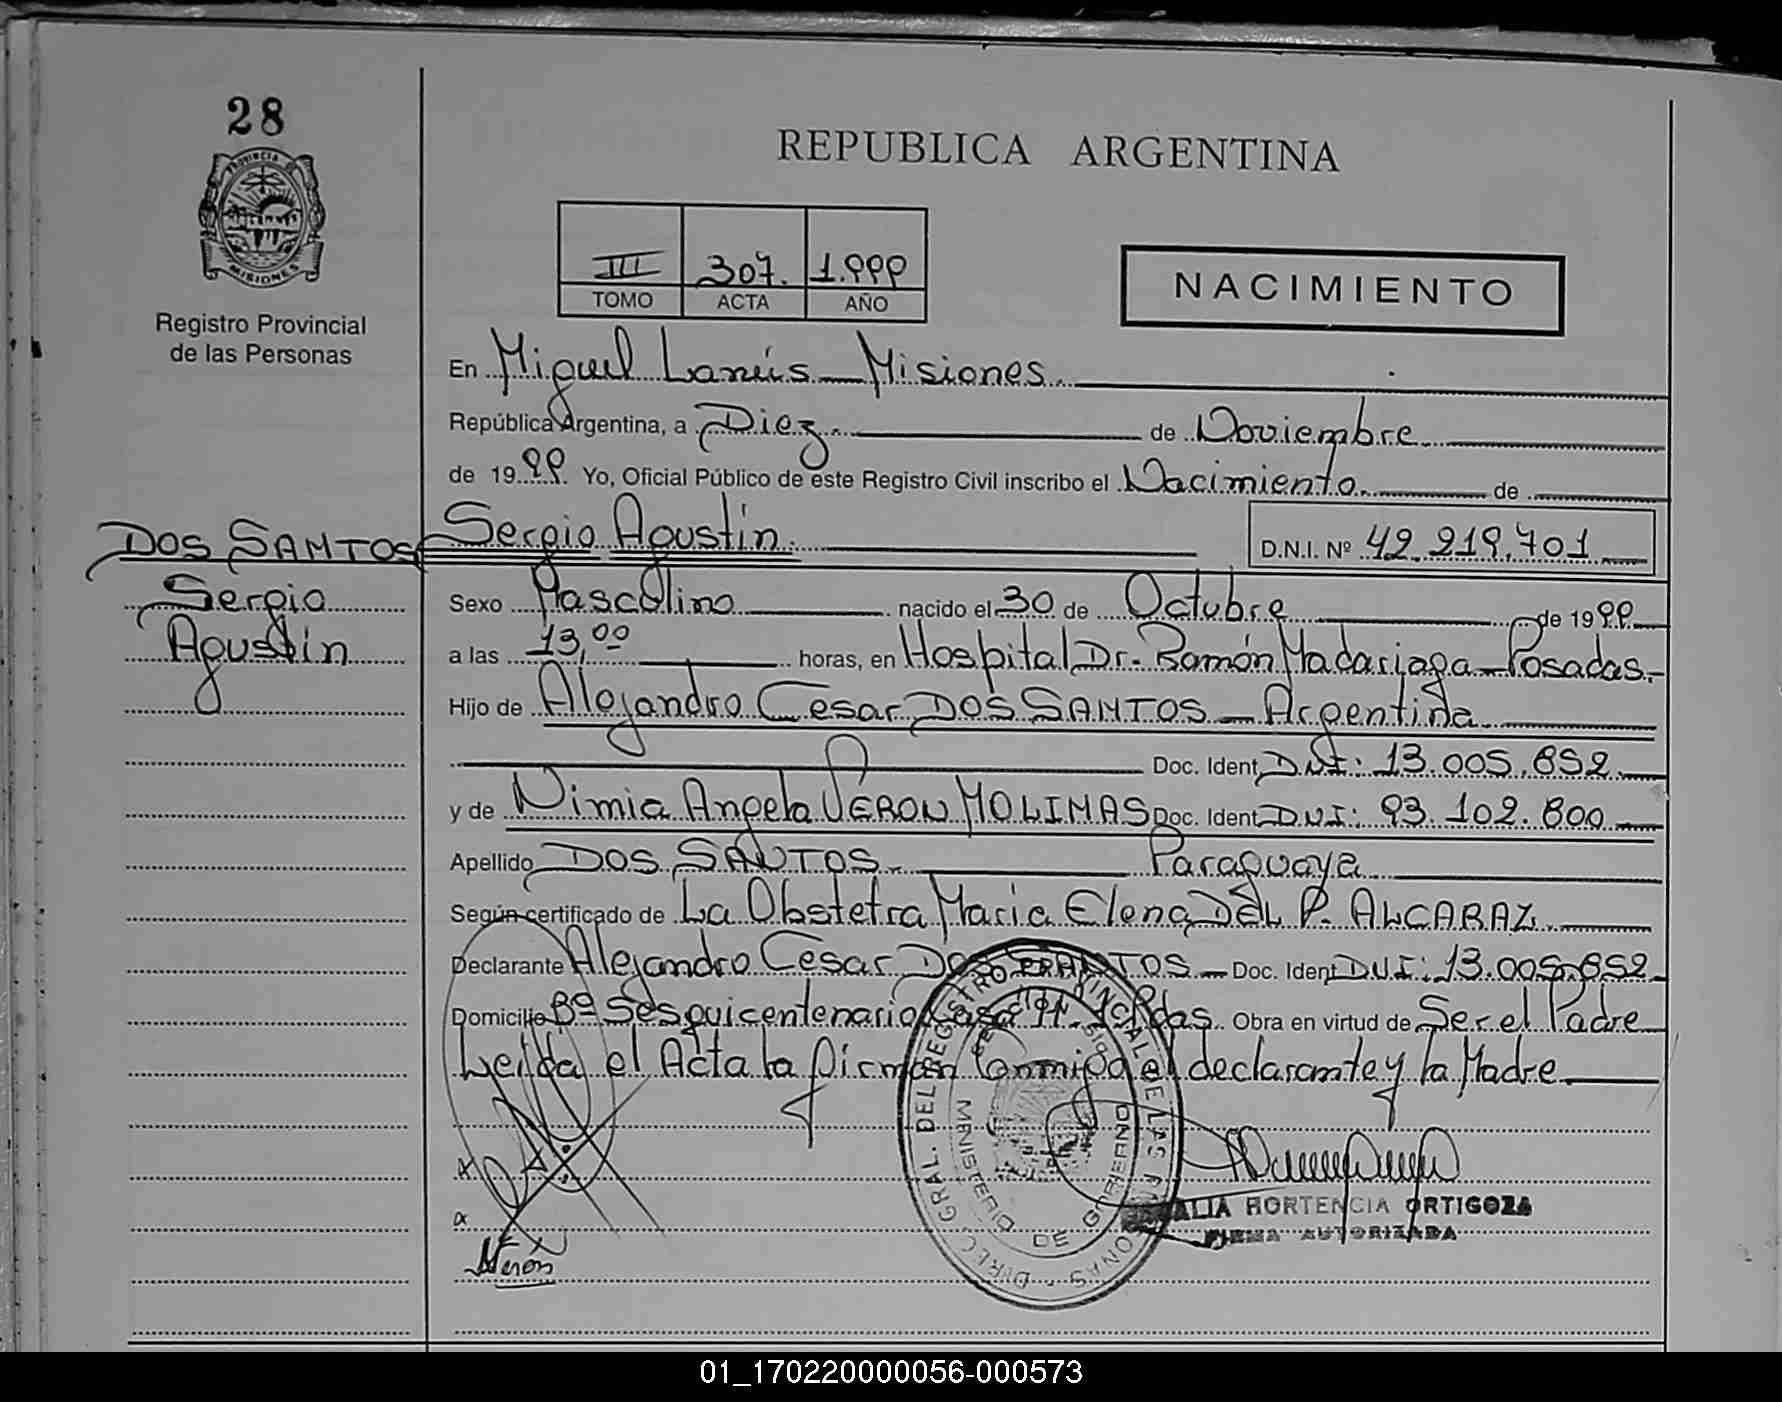 28
PROVINCIA DE
MISIONES
Registro Provincial
de las Personas
REPUBLICA ARGENTINA
III 307. 1.999
TOMO ACTA AÑO
NACIMIENTO
En Miguel Lanús Misiones.
República Argentina, a Diez. de Noviembre
de 1999. Yo, Oficial Público de este Registro Civil inscribo el Nacimiento de
DOS SANTOS Sergio Agustín. D.N.I. Nº 42.219.701
Sergio
Agustín
Sexo Masculino nacido el 30 de Octubre de 1999
a las 13,00 horas, en Hospital Dr. Ramón Madariaga - Posadas.-
Hijo de Alejandro Cesar DOS SANTOS - Argentina
Doc. Ident. D.N.I: 13.005.852
y de Nimia Angela VERON MOLINAS Doc. Ident. D.N.I: 93.102.800
Apellido DOS SANTOS. Paraguaya
Según certificado de La Obstetra Maria Elena DEL P. ALCARAZ.
Declarante Alejandro Cesar DOS SANTOS - Doc. Ident. D.N.I: 13.005.852
Domicilio Bº Sesquicentenario Casa 194. Pdas. Obra en virtud de Ser el Padre
Leída el Acta la firman conmigo el declarante y la Madre
DIREC. GRAL. DEL REGISTRO PROVINCIAL DE LAS PERSONAS
MINISTERIO DE GOBIERNO
HORTENCIA ORTIGOZA
FIRMA AUTORIZADA
Verón
01_170220000056-000573